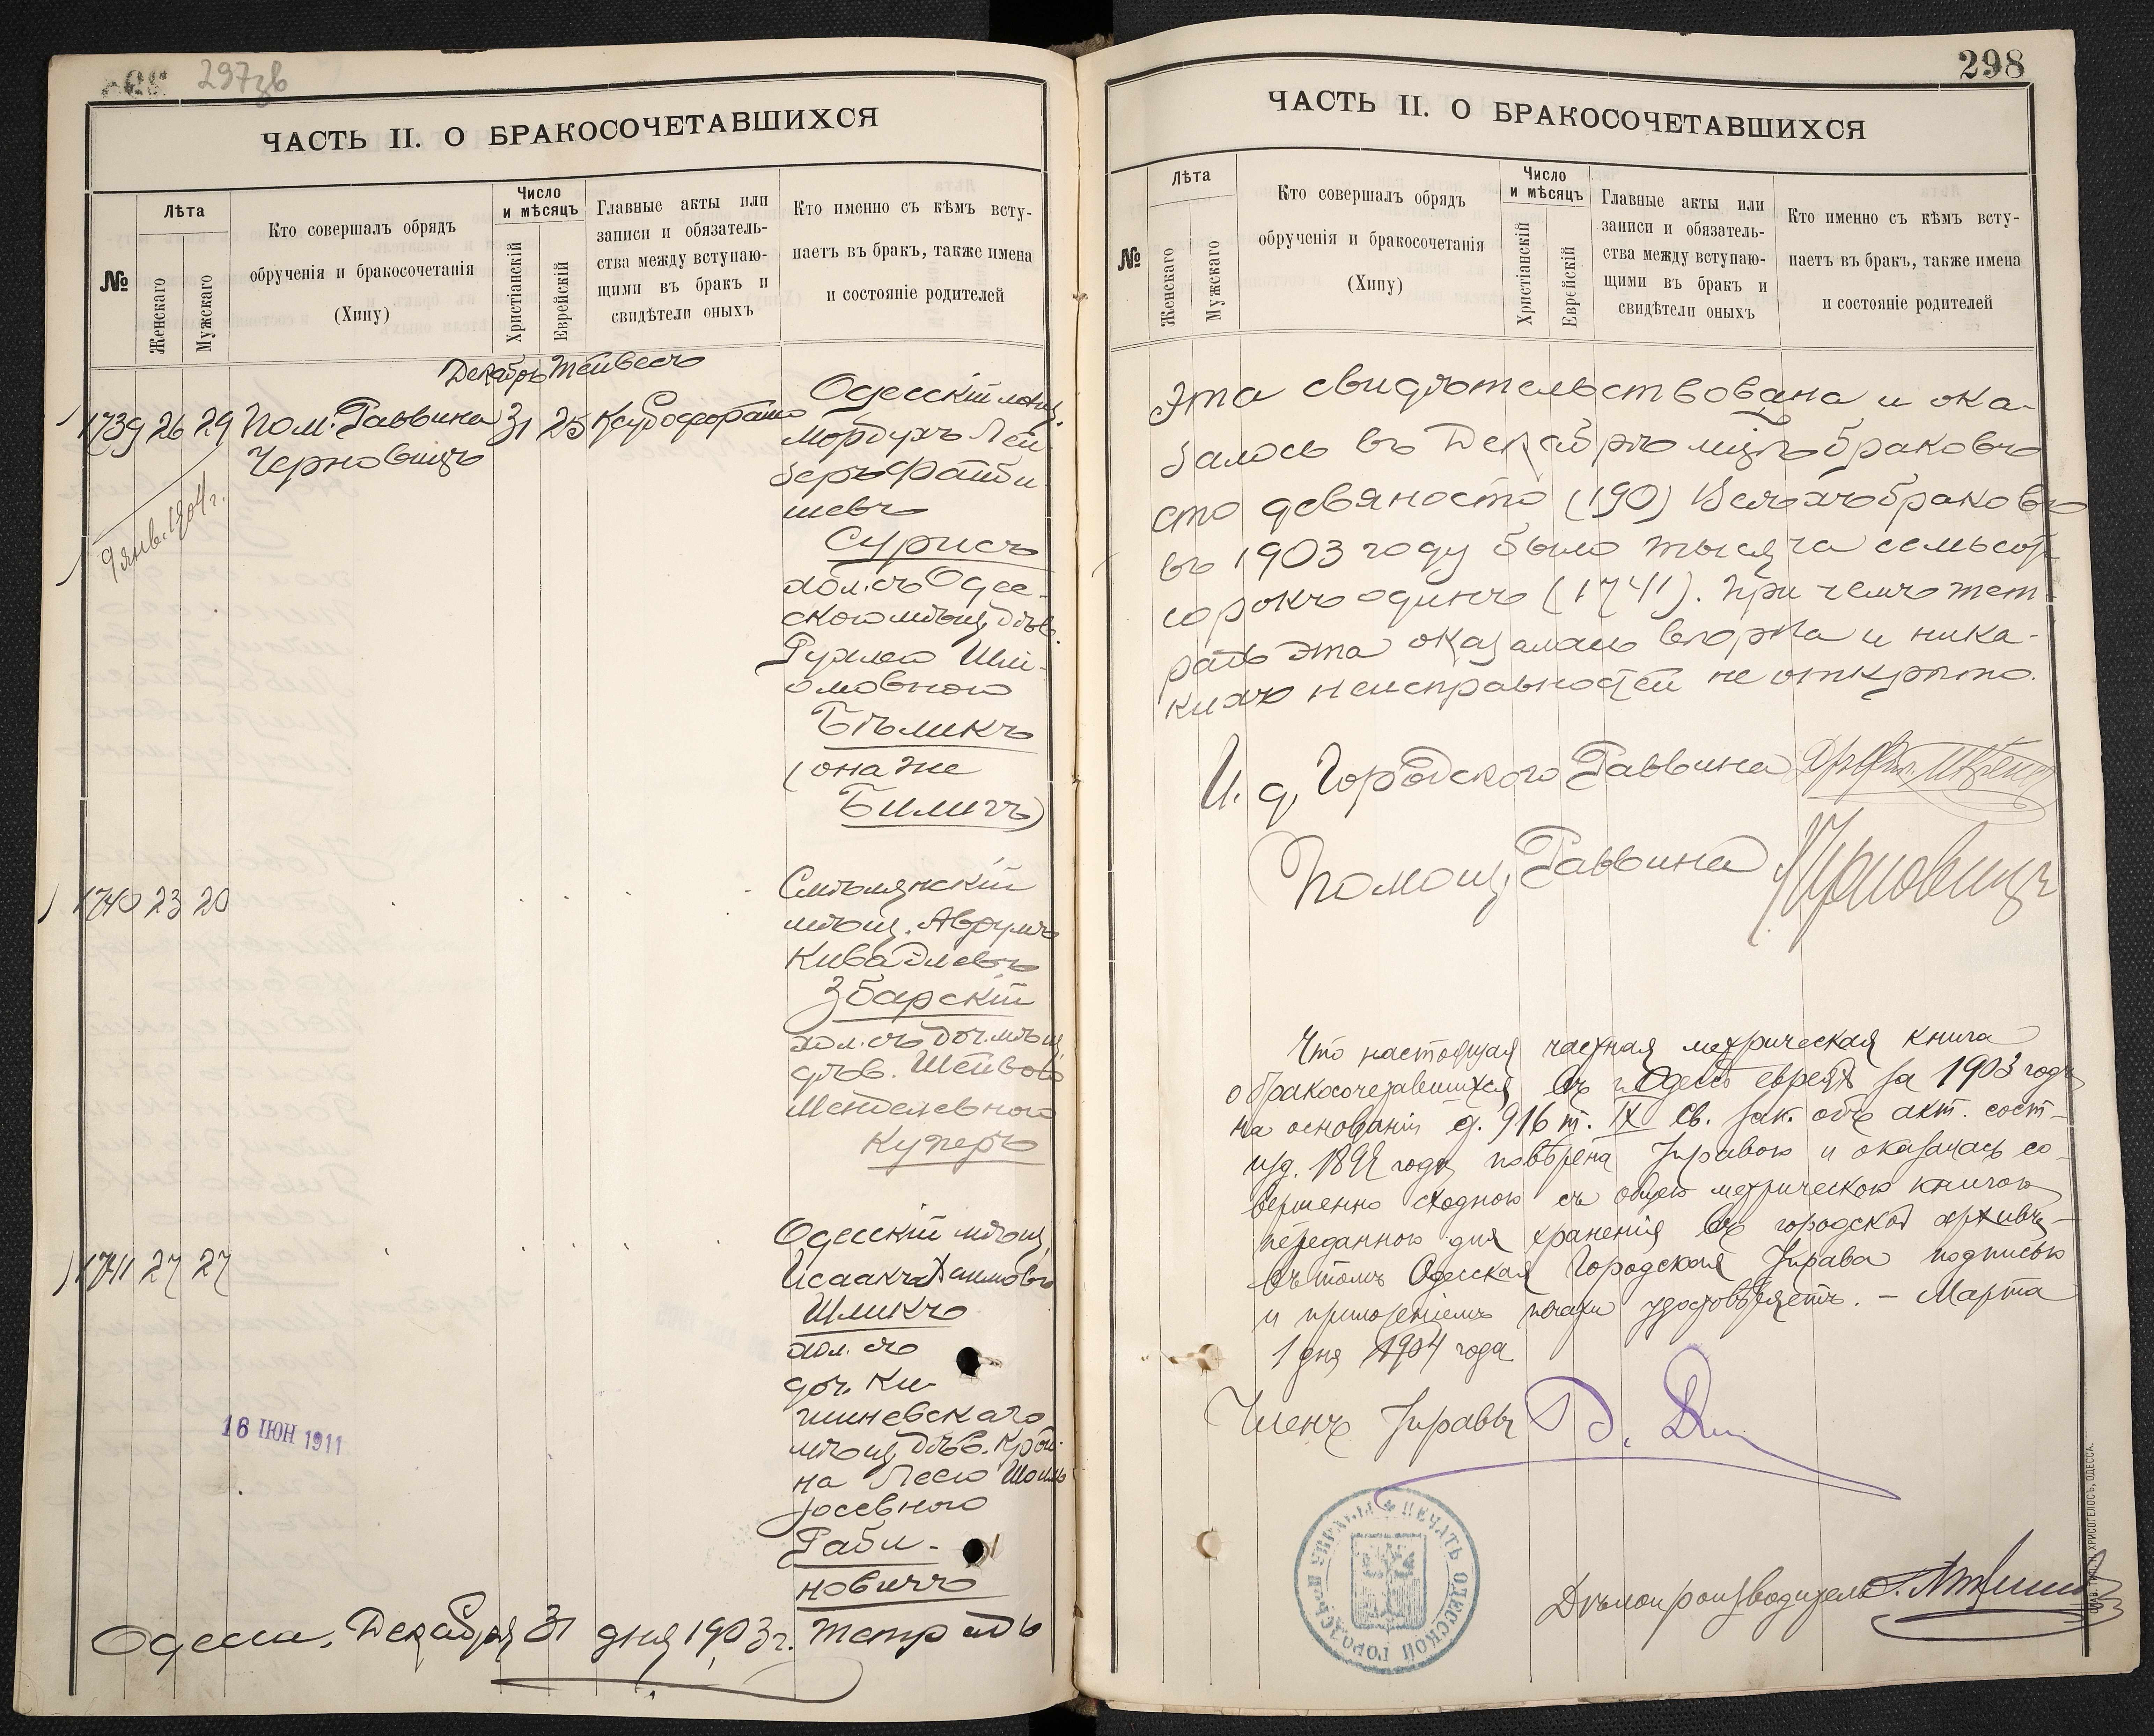 297зв
ЧАСТЬ II. О БРАКОСОЧЕТАВШИХСЯ
№
Лѣта
Женскаго
Мужскаго
Кто совершалъ обрядъ
обрученія и бракосочетанія
(Хипу)
Число
и мѣсяцъ
Христіанскій
Еврейскій
Главные акты или
записи и обязатель-
ства между вступаю-
щими въ бракъ и
свидѣтели оныхъ
Кто именно съ кѣмъ всту-
паетъ въ бракъ, также имена
и состояніе родителей
Декабрь Тейвесъ
1739 26 29 Пом. Раввина 31 25
Черновицъ
9 янв. 1904 г.
Одесскій мѣщ.
Мордухъ Лей-
беръ Файби-
шевъ
Сурисъ
хол. съ Одес-
скою мѣщ. дѣв.
Рухлею Шлі-
омовною
Бѣликъ
(она же
Биличъ)
1740 23 20
Смѣлянскій
мѣщ. Аврумъ
Кива
Збарскій
хол. съ доч. мѣщ.
дѣв. Шейвою
Менделевною
Куперъ
1741 27 27
Одесскій мѣщ.
Исаакъ Хаимовъ
Шликъ
хол. съ
доч. Ки-
шиневскаго
мѣщ. дѣв. Крей-
на Лею
Іосевною
Раби-
новичъ
16 ІЮН 1911
Одесса, Декабря 31 дня 1903 г. Тетрадь
298
ЧАСТЬ II. О БРАКОСОЧЕТАВШИХСЯ
№
Лѣта
Женскаго
Мужскаго
Кто совершалъ обрядъ
обрученія и бракосочетанія
(Хипу)
Число
и мѣсяцъ
Христіанскій
Еврейскій
Главные акты или
записи и обязатель-
ства между вступаю-
щими въ бракъ и
свидѣтели оныхъ
Кто именно съ кѣмъ всту-
паетъ въ бракъ, также имена
и состояніе родителей
Эта свидѣтельствована и ока-
залось въ Декабрѣ мцѣ браковъ
сто девяносто (190) Всѣхъ браковъ
въ 1903 году было тысяча семьсот
сорокъ одинъ (1741). При чемъ тет-
радь эта оказалась вѣрна и ника-
кихъ неисправностей не открыто.
И. д. Городского Раввина
Помощ. Раввина Черновицъ
Что настоящая частная метрическая книга
о бракосочетавшихся въ г. Одессѣ евреях за 1903 годъ
на основаніи ст. 916 т. IX Св. Зак. объ акт. сост-
изд. 1899 года повѣрена Управою и оказалась со-
вершенно сходною съ общею метрическою книгою
переданною для храненія въ городской архивъ,-
въ томъ Одесская Городская Управа подписью
и приложеніемъ печати удостовѣряетъ. - Марта
1 дня 1904 года
Членъ Управы
ПЕЧАТЬ ОДЕССКОЙ ГОРОДСКОЙ УПРАВЫ
Дѣлопроизводитель
ХРИСОГЕЛОСЪ, ОДЕССА.